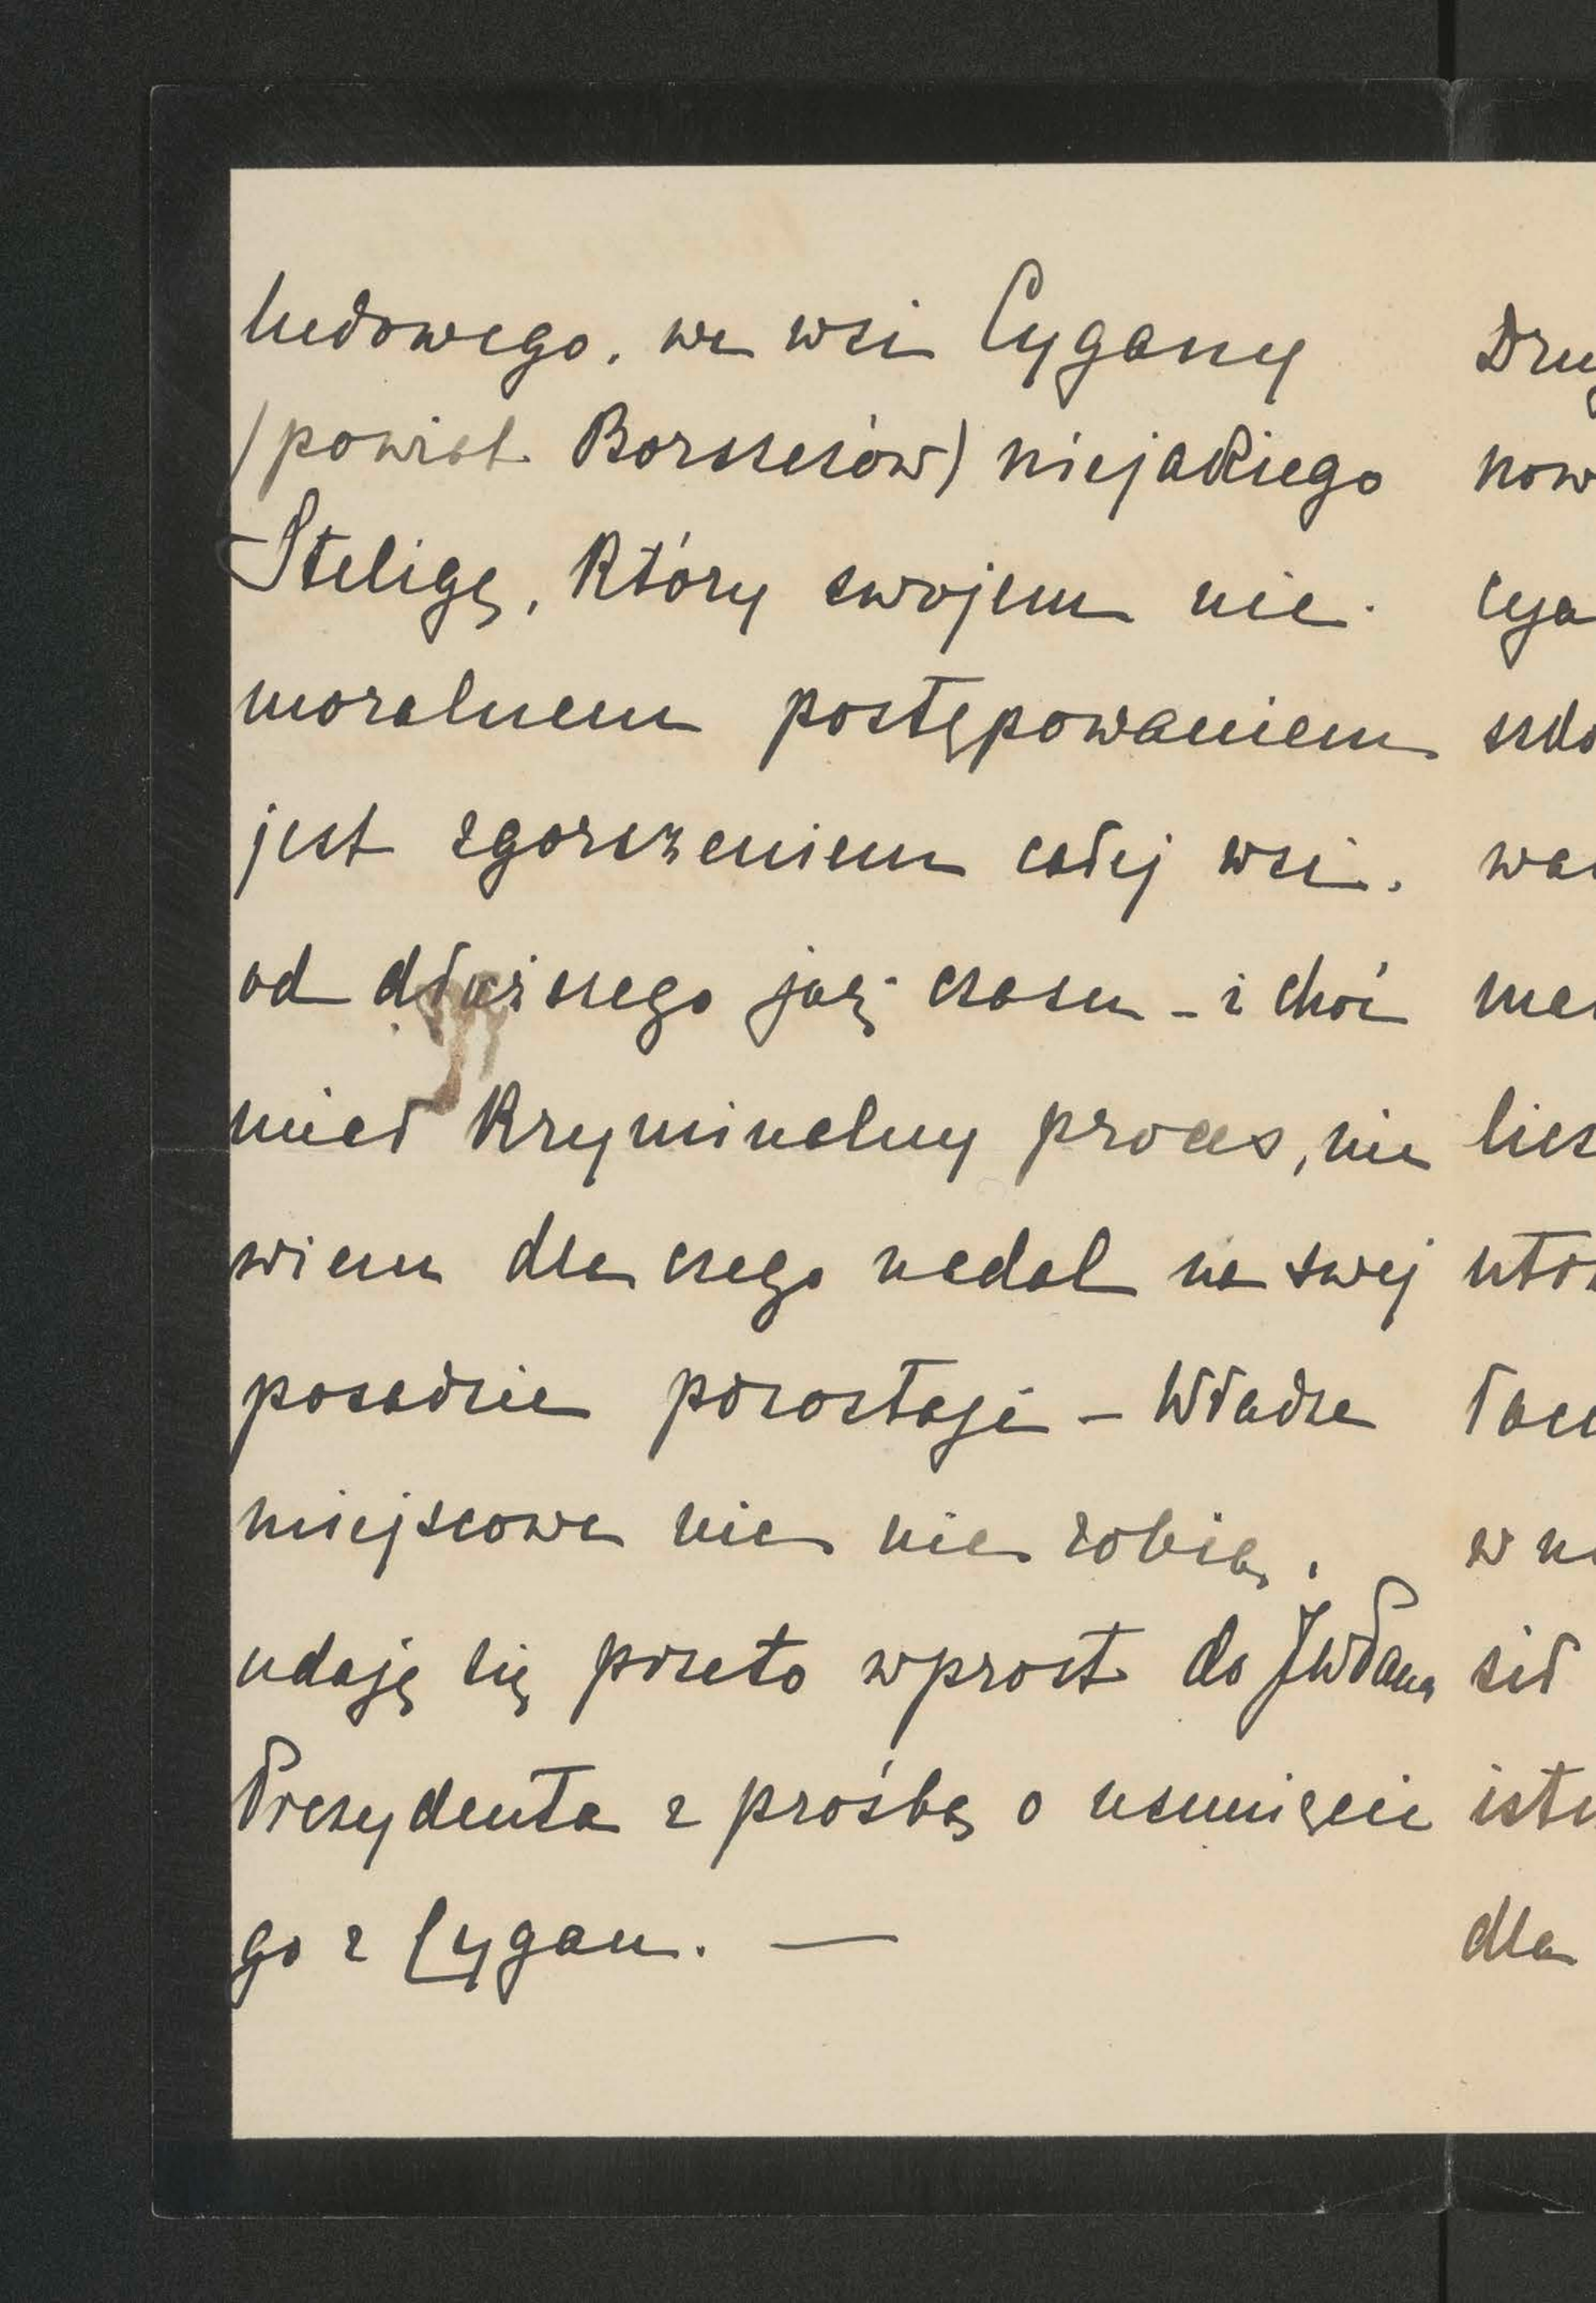 ludowego, we wsi Cygany
(powiat Borszczów) niejakiego
Steligę, który swojem nie-
moralnem postępowaniem
jest zgorszeniem całej wsi.
od dłuższego już czasu – i choć
miał kryminalny proces, nie
wiem dla czego nadal na swej
posadzie pozostaje – Władze
miejscowe nic nie robią,
udaję się przeto wprost do JWPana
Prezydenta z prośbą o usunięcie
go z Cygan. —
Dru
now
cya
szko
wa
me
licz
utr
łac
w n
sił
ist
dla